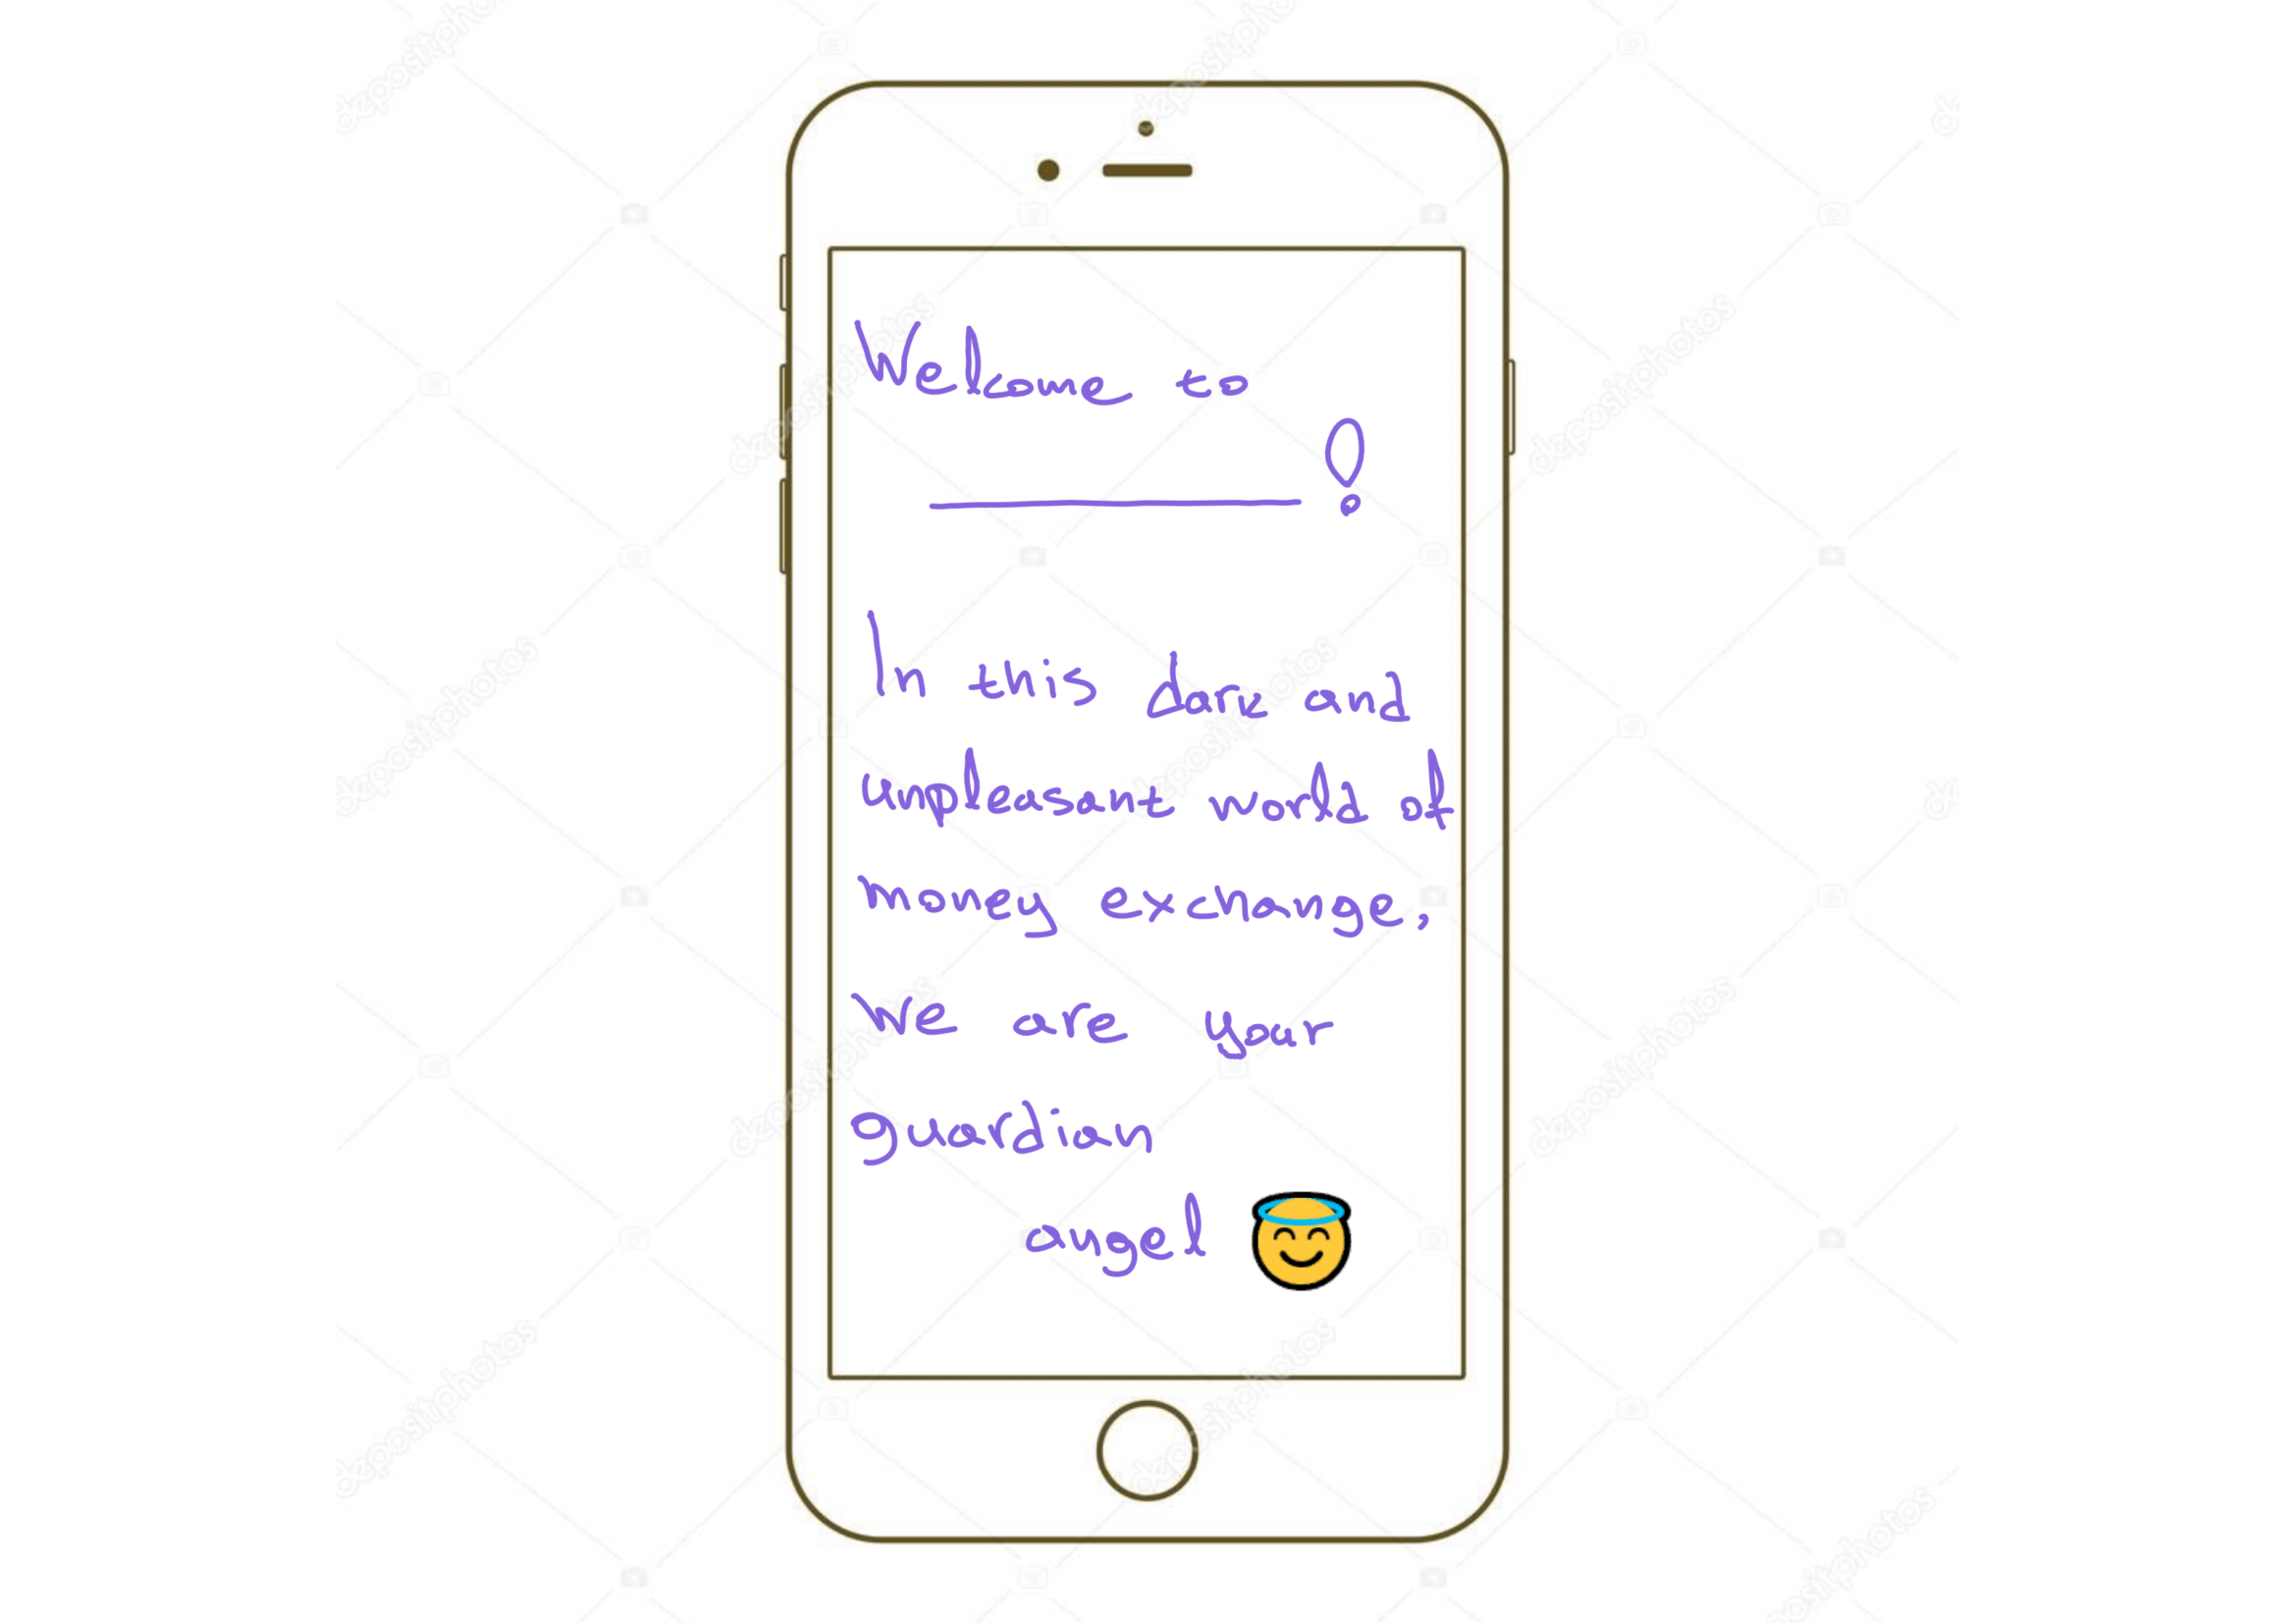 Welcome to
__________!
In this dark and
unpleasant world of
money exchange,
we are your
guardian
angel 😇
depositphotos